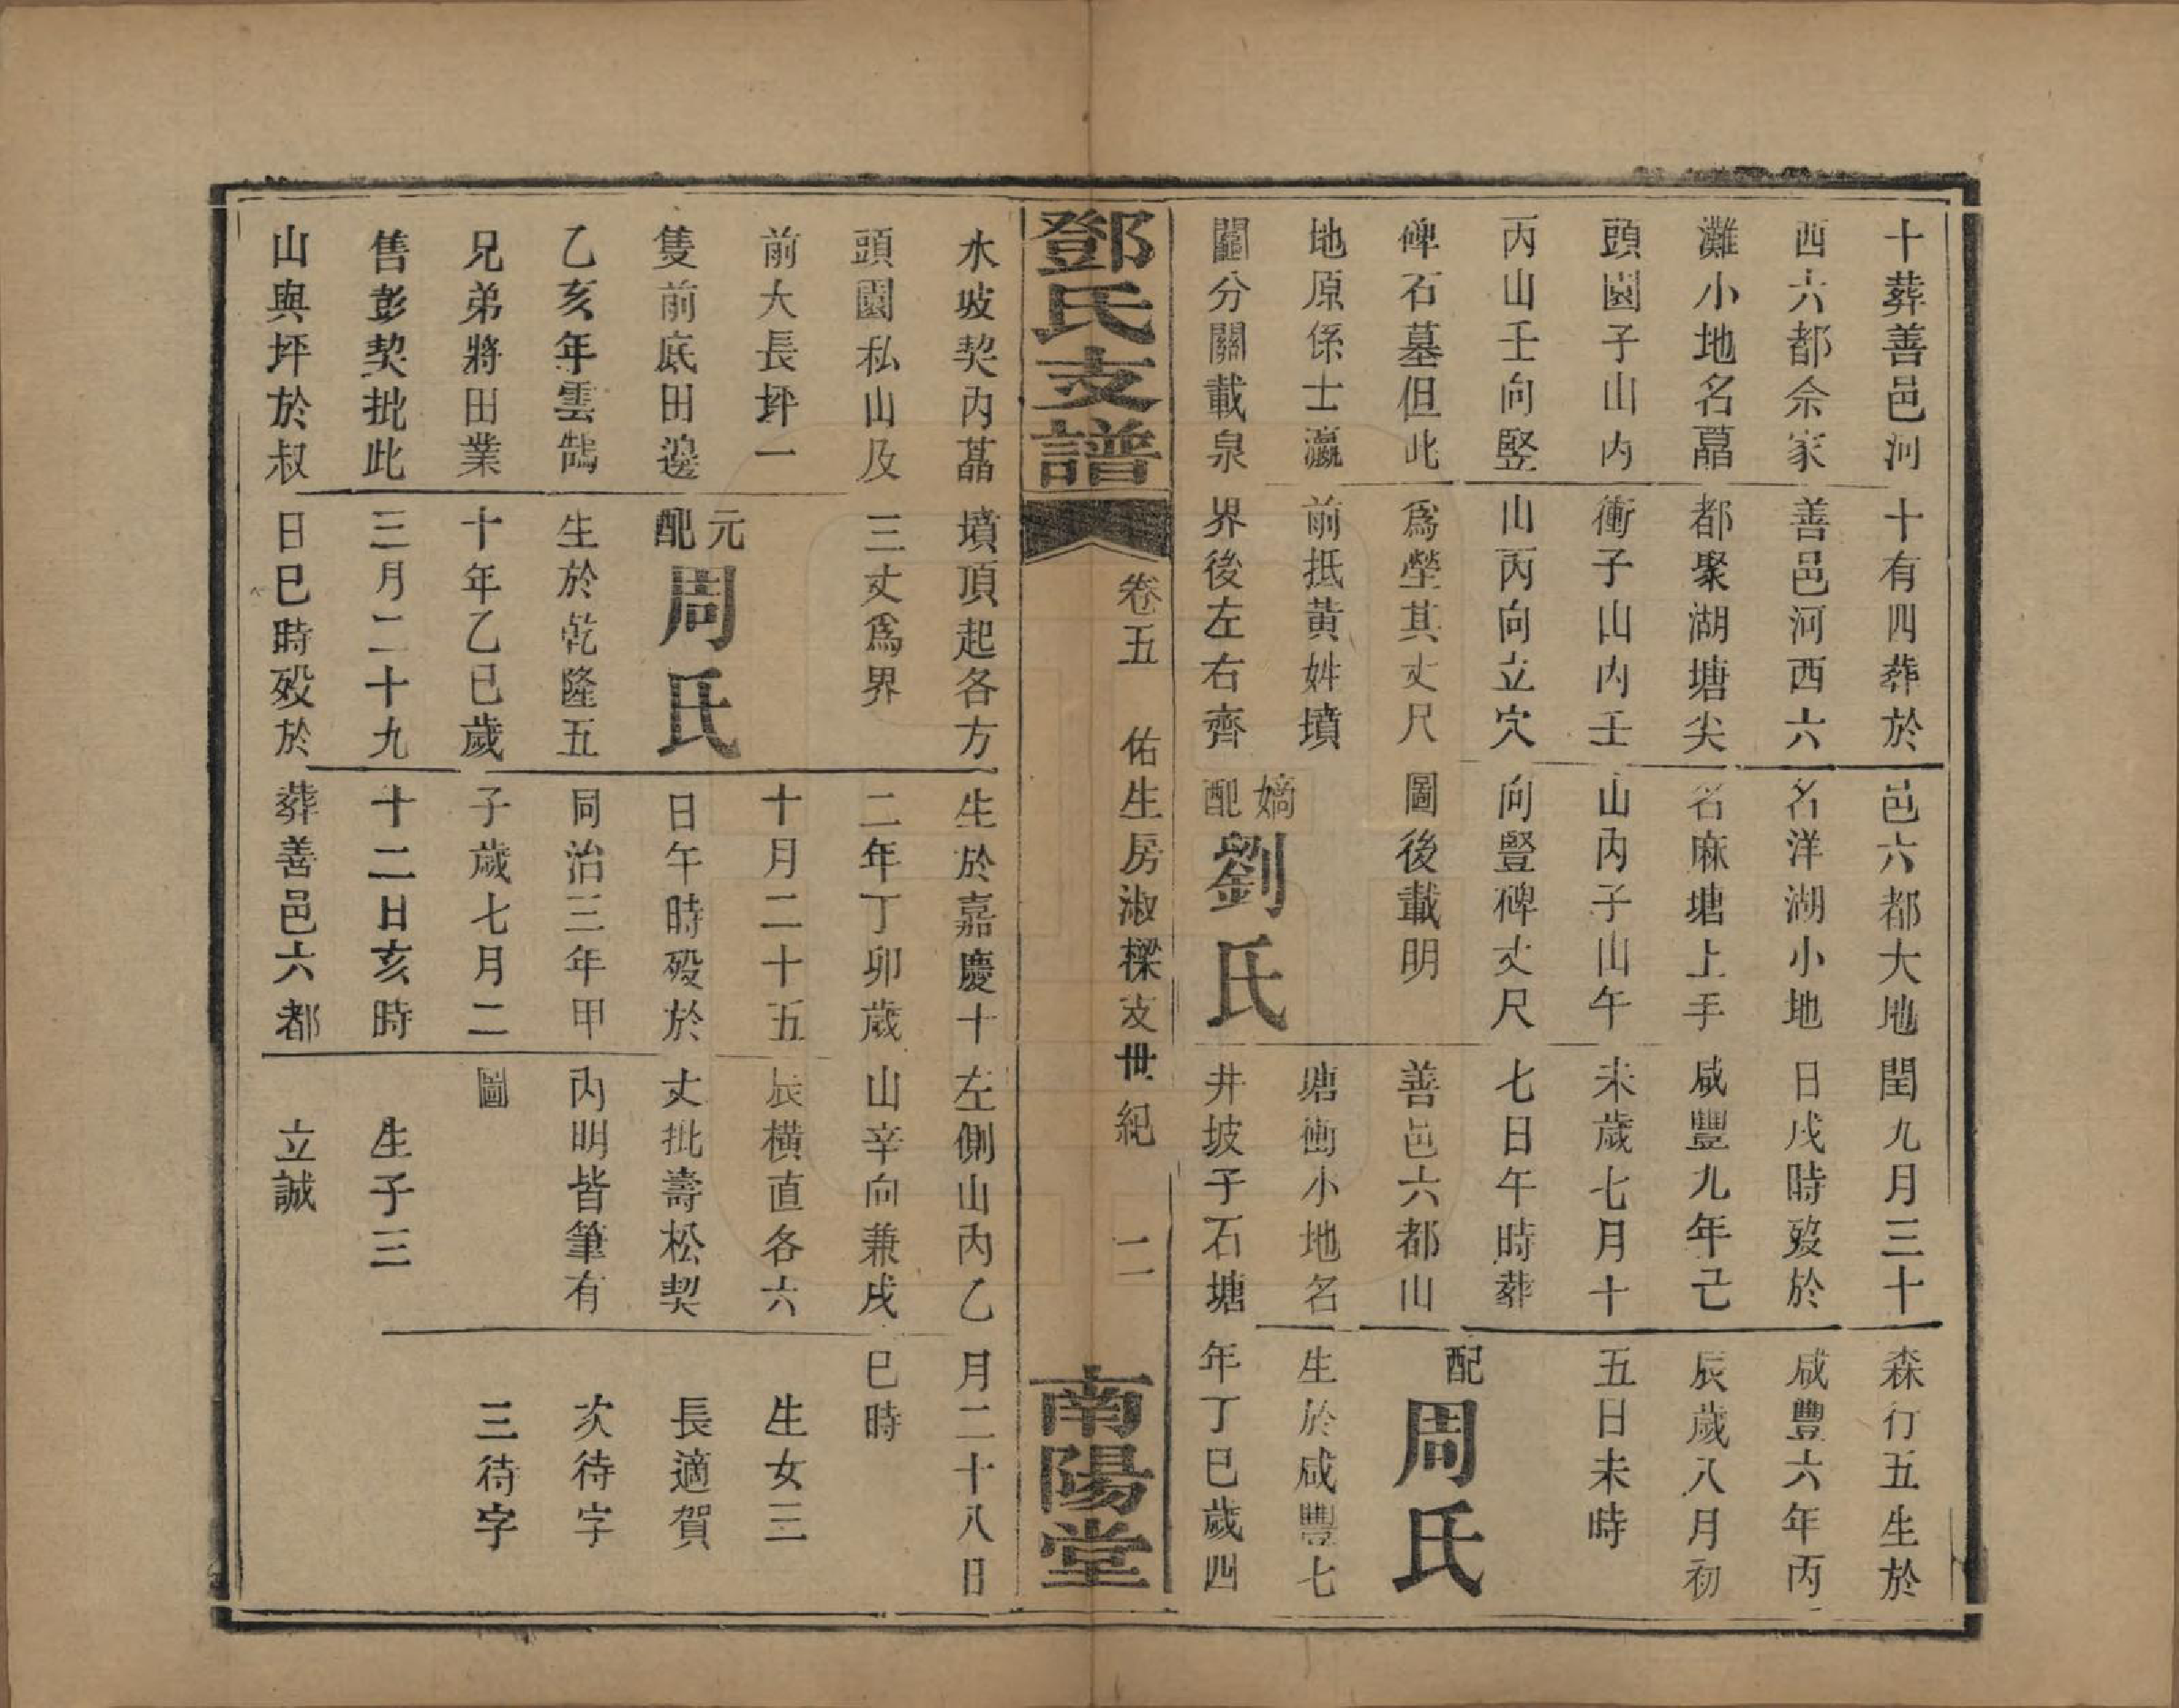 十葬善邑河
西六都佘家
灘小地名藠
頭園子山內
丙山壬向竪
碑石墓但此
地原係士瀛
鬮分關載泉
十有四葬於
善邑河西六
都聚湖塘尖
衝子山內壬
山丙向立穴
爲塋其丈尺
前抵黃姓墳
界後左右齊
邑六都大地
名洋湖小地
名麻塘上手
山內子山午
向豎碑丈尺
圖後載明
嫡配劉氏
閏九月三十
日戌時歿於
咸豐九年己
未歲七月十
七日午時葬
善邑六都山
塘衝小地名
井坡子石塘
森行五生於
咸豐六年丙
辰歲八月初
五日未時
配周氏
生於咸豐七
年丁巳歲四
鄧氏支譜
卷五
佑生房淑樑支世紀
二
南陽堂
水坡契內藠
頭園私山及
前大長坪一
隻前底田邊
乙亥年雲鵠
兄弟將田業
售彭契批此
山與坪於叔
墳頂起各方
三丈爲界
元配周氏
生於乾隆五
十年乙巳歲
三月二十九
日巳時歿於
生於嘉慶十
二年丁卯歲
十月二十五
日午時歿於
同治三年甲
子歲七月二
十二日亥時
葬善邑六都
左側山內乙
山辛向兼戌
辰橫直各六
丈批壽松契
內明皆筆有
圖
生子三
立誠
月二十八日
巳時
生女三
長適賀
次待字
三待字